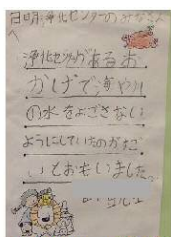 日明浄化センターのみなさん
へ
浄化センターがあるお
かげで海や川
の水をよごさない
ようにしているのがすご
いとおもいました。